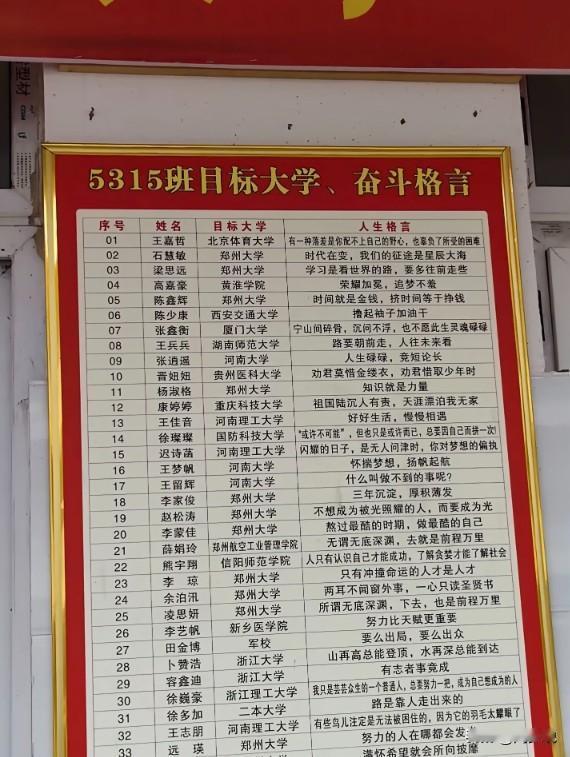 5315班目标大学、奋斗格言
序号 姓名 目标大学 人生格言
01 王嘉哲 北京体育大学 有一种落差是你配不上自己的野心,也辜负了所受的困难
02 石慧敏 郑州大学 时代在变,我们的征途是星辰大海
03 梁思远 郑州大学 学习是看世界的路,要多往前走些
04 高嘉豪 黄淮学院 荣耀加冕,追梦不羞
05 陈鑫辉 郑州大学 时间就是金钱,挤时间等于挣钱
06 陈少康 西安交通大学 撸起袖子加油干
07 张鑫衡 厦门大学 宁山间碎骨,沉问不浮,也不愿此生灵魂碌碌
08 王兵兵 湖南师范大学 路要朝前走,人往未来看
09 张逍遥 河南大学 人生碌碌,竞短论长
10 晋妞妞 贵州医科大学 劝君莫惜金缕衣,劝君惜取少年时
11 杨淑格 郑州大学 知识就是力量
12 康婷婷 重庆科技大学 祖国陆沉人有责,天涯漂泊我无家
13 王佳音 河南理工大学 好好生活,慢慢相遇
14 徐璨璨 国防科技大学 “或许不可能”,但也只是或许而已,总要因自己而拼一次!
15 迟诗菡 河南理工大学 闪耀的日子,是无人问津时,你对梦想的偏执
16 王梦帆 河南大学 怀揣梦想,扬帆起航
17 王留辉 河南大学 什么叫做不到的事呢?
18 李家俊 郑州大学 三年沉淀,厚积薄发
19 赵松涛 郑州大学 不想成为被光照耀的人,而要成为光
20 李蒙佳 郑州大学 熬过最酷的时期,做最酷的自己
21 薛娟玲 郑州航空工业管理学院 无谓无底深渊,去就是前程万里
22 熊宇翔 信阳师范学院 人只有认识自己才能成功,了解贪婪才能了解社会
23 李琼 郑州大学 只有冲撞命运的人才是人才
24 余泊汛 郑州大学 两耳不闻窗外事,一心只读圣贤书
25 凌思妍 郑州大学 所谓无底深渊,下去,也是前程万里
26 李艺帆 新乡医学院 努力比天赋更重要
27 田金博 军校 要么出局,要么出众
28 卜赞浩 浙江大学 山再高总能登顶,水再深总能到达
29 容鑫迪 浙江大学 有志者事竟成
30 徐巍豪 浙江理工大学 我只是芸芸众生的一个普通人,总要努力一把,成为自己想成为的人
31 徐多加 二本大学 路是靠人走出来的
32 王志朋 河南理工大学 有些鸟儿注定是无法被困住的,因为它的羽毛太耀眼了
33 远瑛 郑州大学 努力的人在哪都会发
满怀希望就会所向披靡